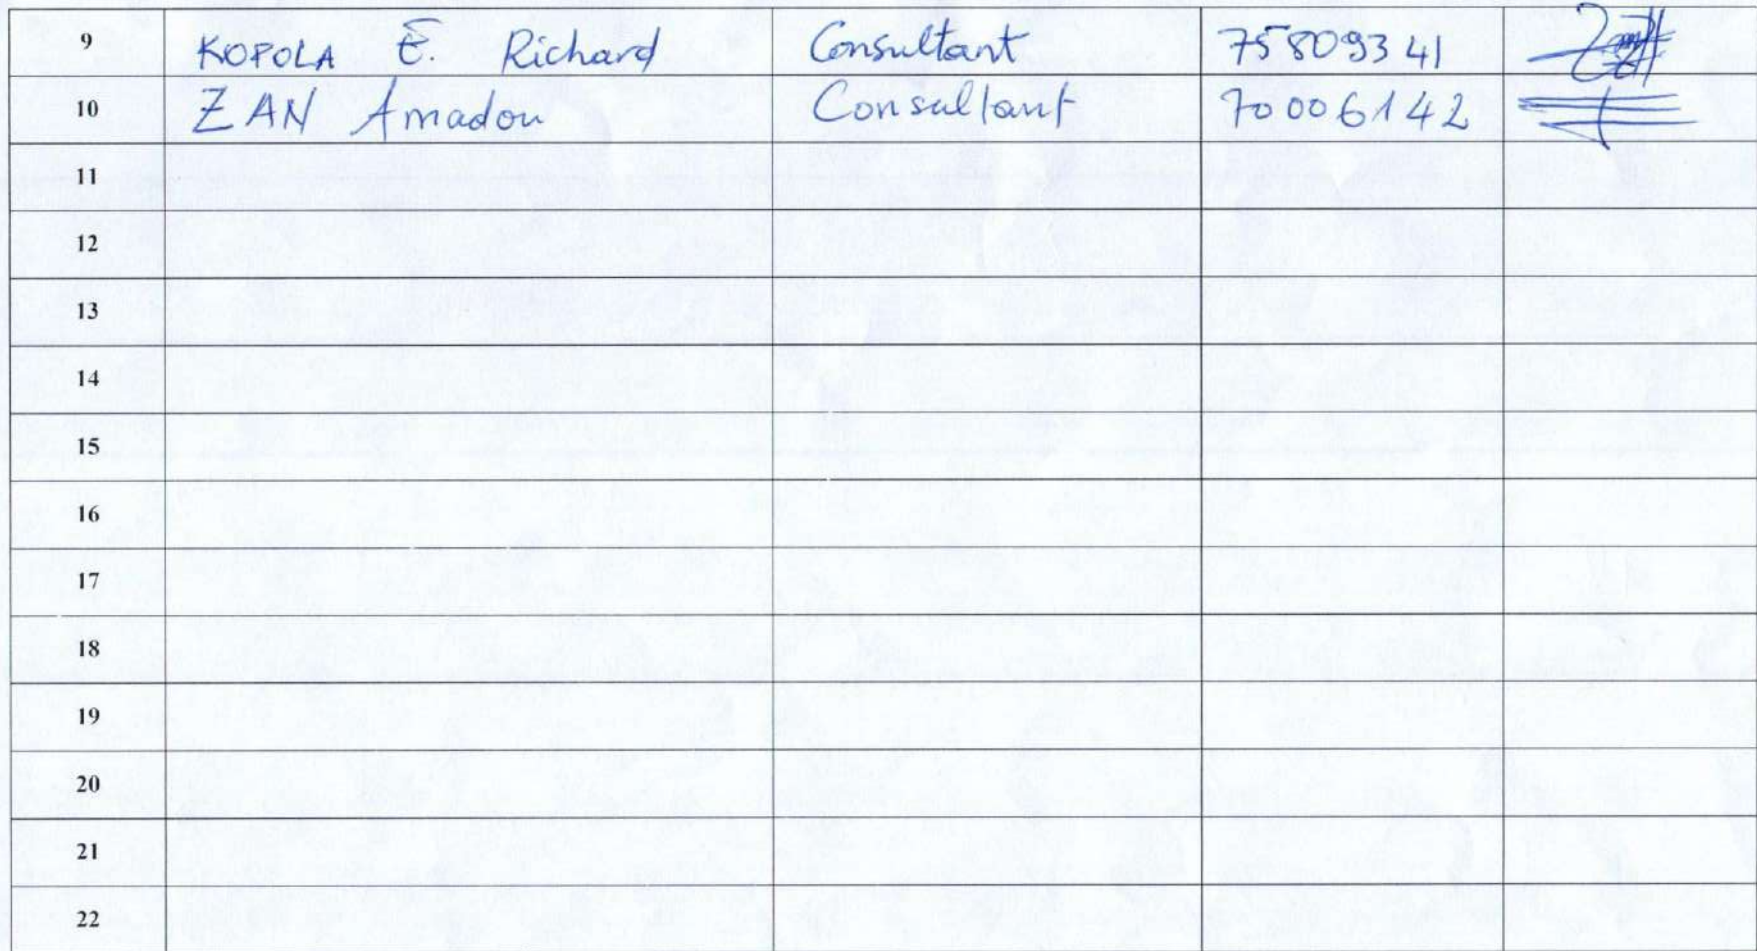 9 KOPOLA E. Richard Consultant 75809341
10 ZAN Amadou Consultant 70006142
11
12
13
14
15
16
17
18
19
20
21
22